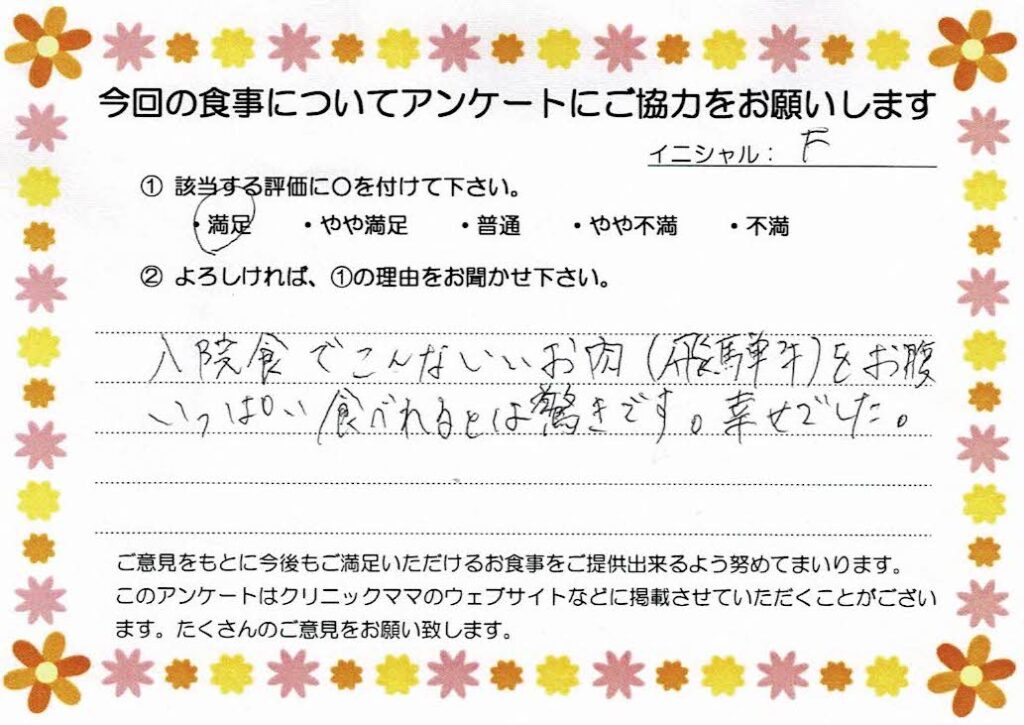 今回の食事についてアンケートにご協力をお願いします
イニシャル： F
① 該当する評価に〇を付けて下さい。
・満足 ・やや満足 ・普通 ・やや不満 ・不満
② よろしければ、①の理由をお聞かせ下さい。
入院食でこんないいお肉(飛騨牛)をお腹
いっぱい食べれるとは驚きです。幸せでした。
ご意見をもとに今後もご満足いただけるお食事をご提供出来るよう努めてまいります。
このアンケートはクリニックママのウェブサイトなどに掲載させていただくことがござい
ます。たくさんのご意見をお願い致します。